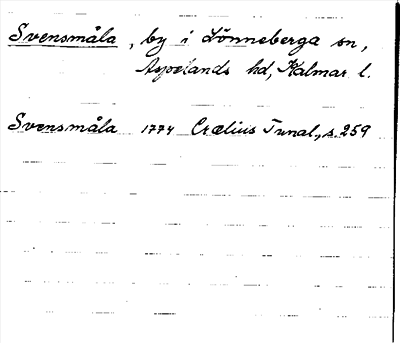 Svensmåla, by i Lönneberga sn,
Aspelands hd, Kalmar l.
Svensmåla 1774 Crælius Tunal., s. 259